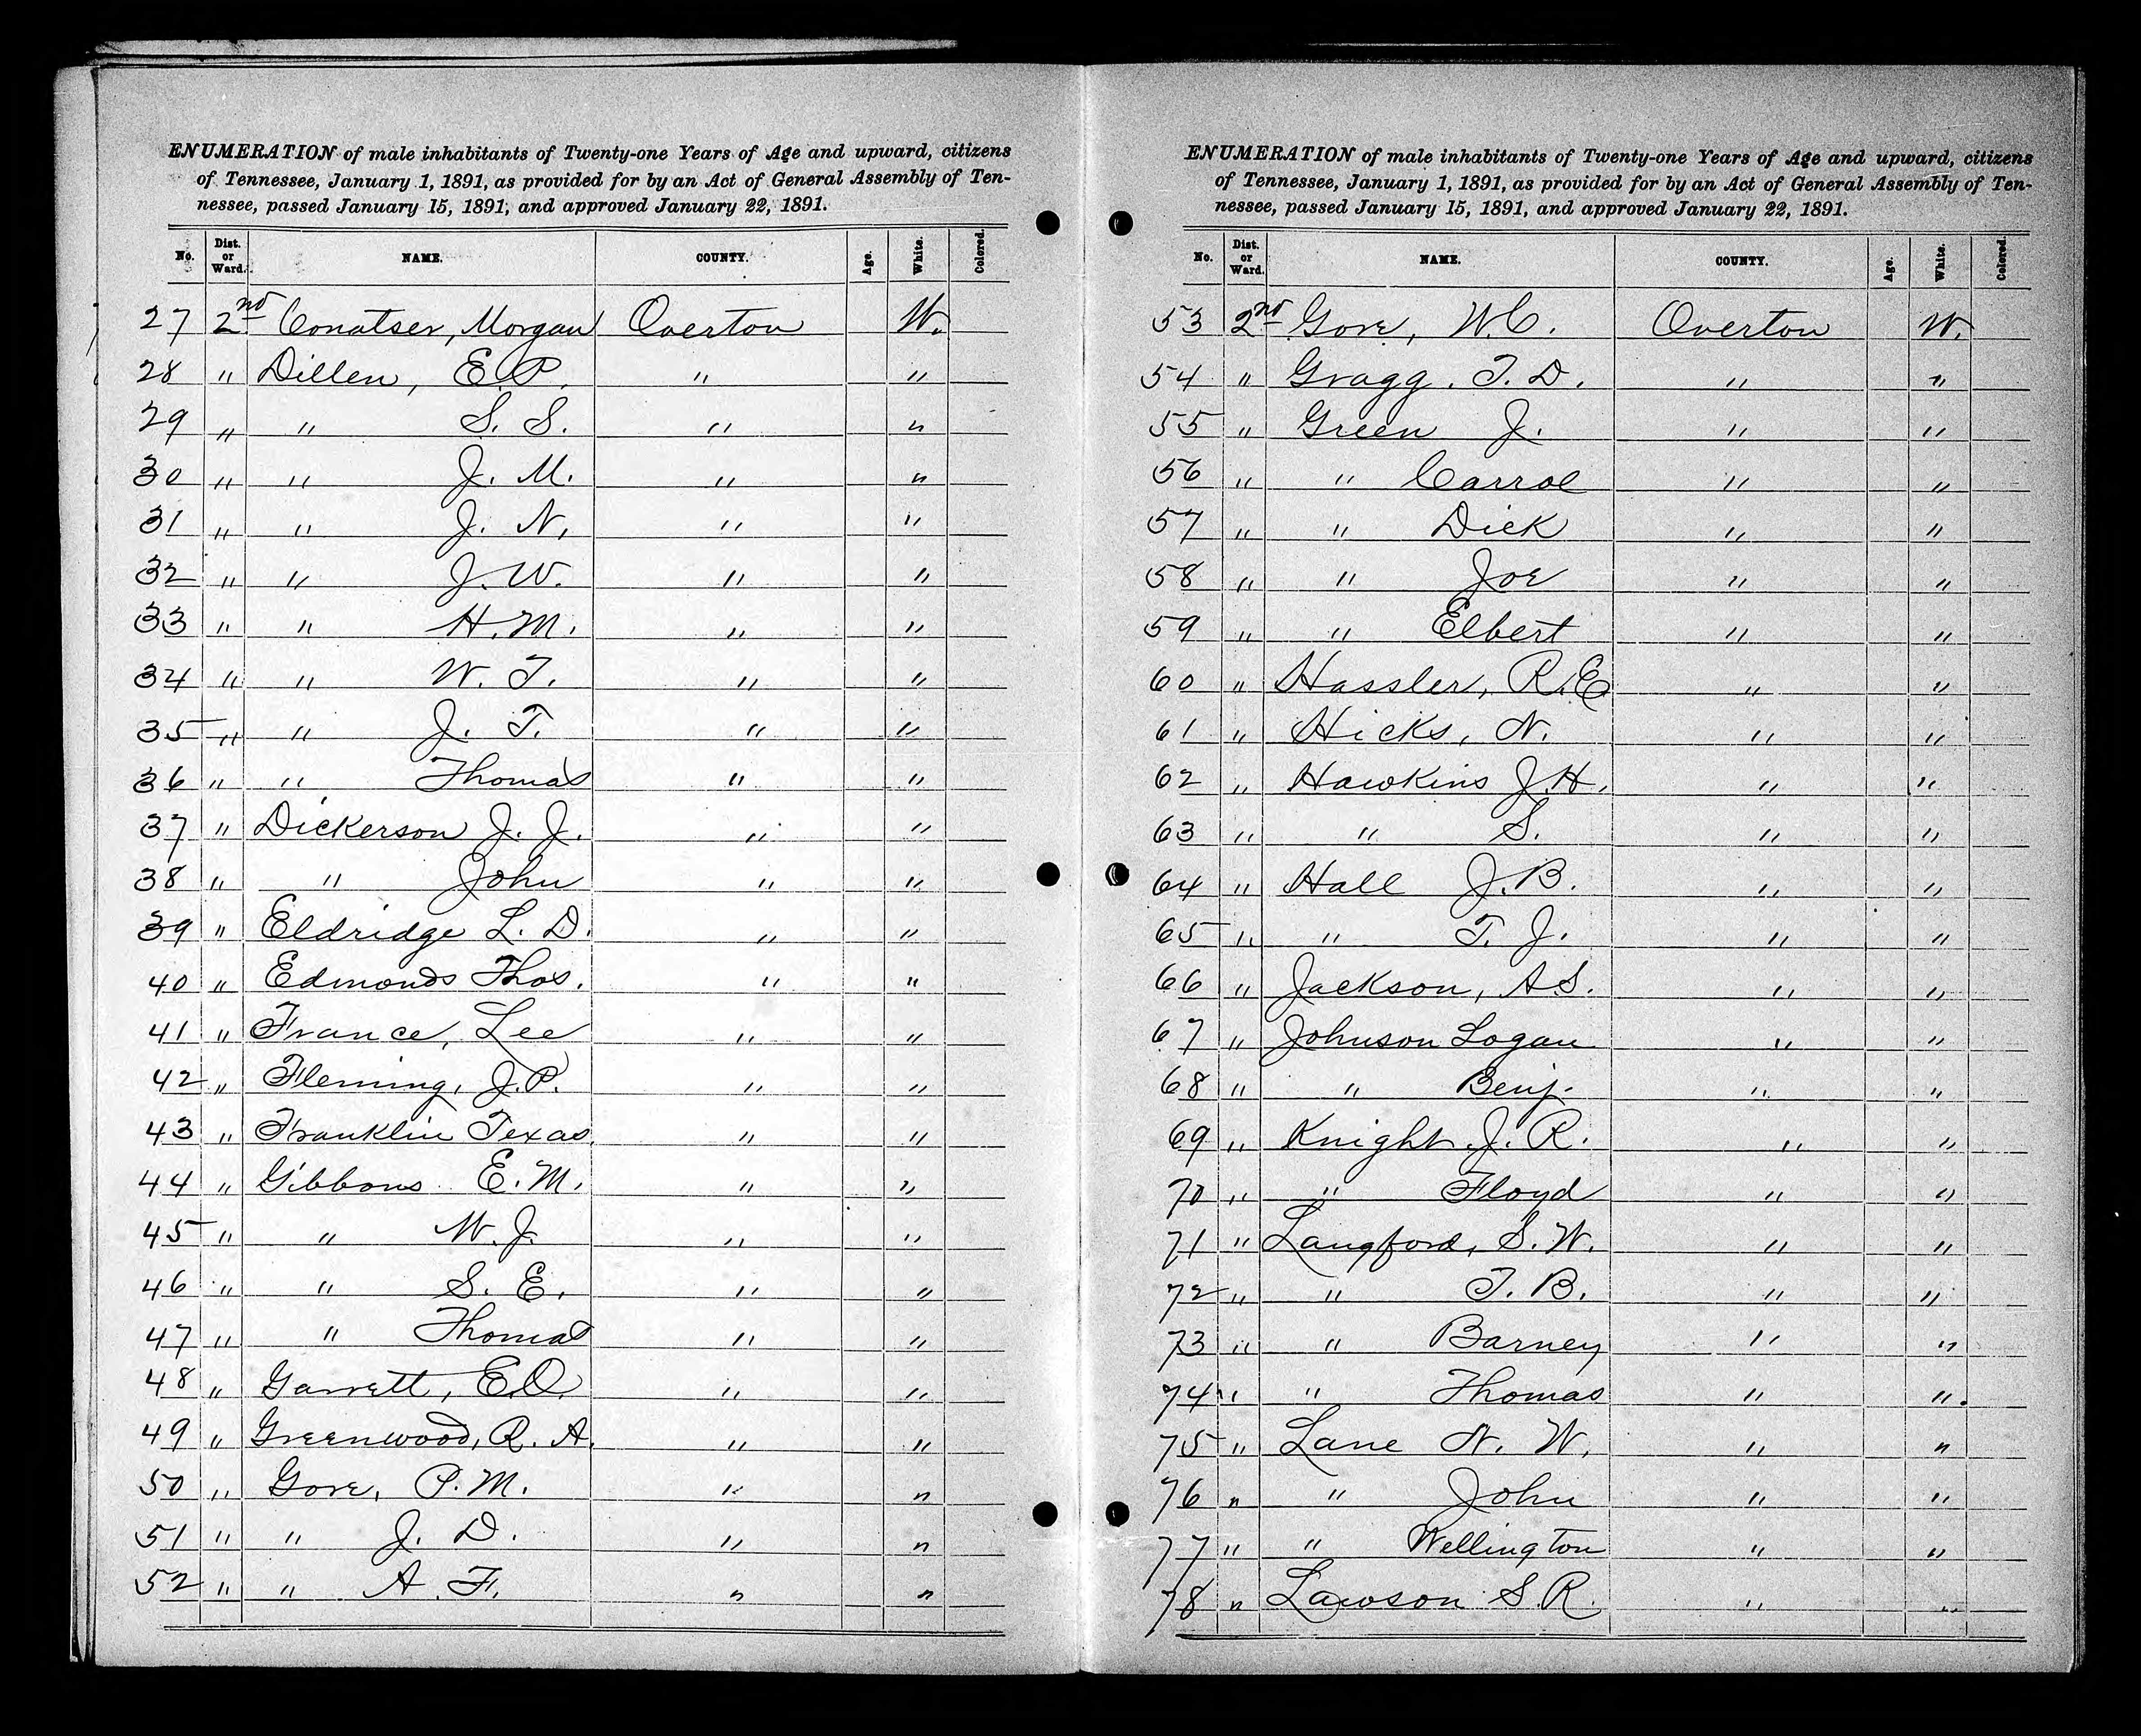 ENUMERATION of male inhabitants of Twenty-one Years of Age and upward, citizens
of Tennessee, January 1, 1891, as provided for by an Act of General Assembly of Ten-
nessee, passed January 15, 1891, and approved January 22, 1891.
No. Dist. or Ward. NAME. COUNTY. Age. White. Colored.
27 2nd Conatser, Morgan Overton W.
28 " Dillen, E. P. " "
29 " " S. S. " "
30 " " J. M. " "
31 " " J. N. " "
32 " " J. W. " "
33 " " H. M. " "
34 " " W. T. " "
35 " " J. T. " "
36 " " Thomas " "
37 " Dickerson J. J. " "
38 " " John " "
39 " Eldridge L. D. " "
40 " Edmonds Thos. " "
41 " France, Lee " "
42 " Fleming, J. P. " "
43 " Franklin Texas " "
44 " Gibbons E. M. " "
45 " " W. J. " "
46 " " S. E. " "
47 " " Thomas " "
48 " Garrett, E. O. " "
49 " Greenwood, R. A. " "
50 " Gore, P. M. " "
51 " " J. D. " "
52 " " A. F. " "
ENUMERATION of male inhabitants of Twenty-one Years of Age and upward, citizens
of Tennessee, January 1, 1891, as provided for by an Act of General Assembly of Ten-
nessee, passed January 15, 1891, and approved January 22, 1891.
No. Dist. or Ward. NAME. COUNTY. Age. White. Colored.
53 2nd Gore, W. C. Overton W.
54 " Gragg. T. D. " "
55 " Green J. " "
56 " " Carrol " "
57 " " Dick " "
58 " " Joe " "
59 " " Elbert " "
60 " Hassler, R. E. " "
61 " Hicks, N. " "
62 " Hawkins J. H. " "
63 " " S. " "
64 " Hall J. B. " "
65 " " T. J. " "
66 " Jackson, A S. " "
67 " Johnson Logan " "
68 " " Benj. " "
69 " Knight J. R. " "
70 " " Floyd " "
71 " Langford, S. W. " "
72 " " T. B. " "
73 " " Barney " "
74 " " Thomas " "
75 " Lane N. W. " "
76 " " John " "
77 " " Wellington " "
78 " Lawson S. R. " "